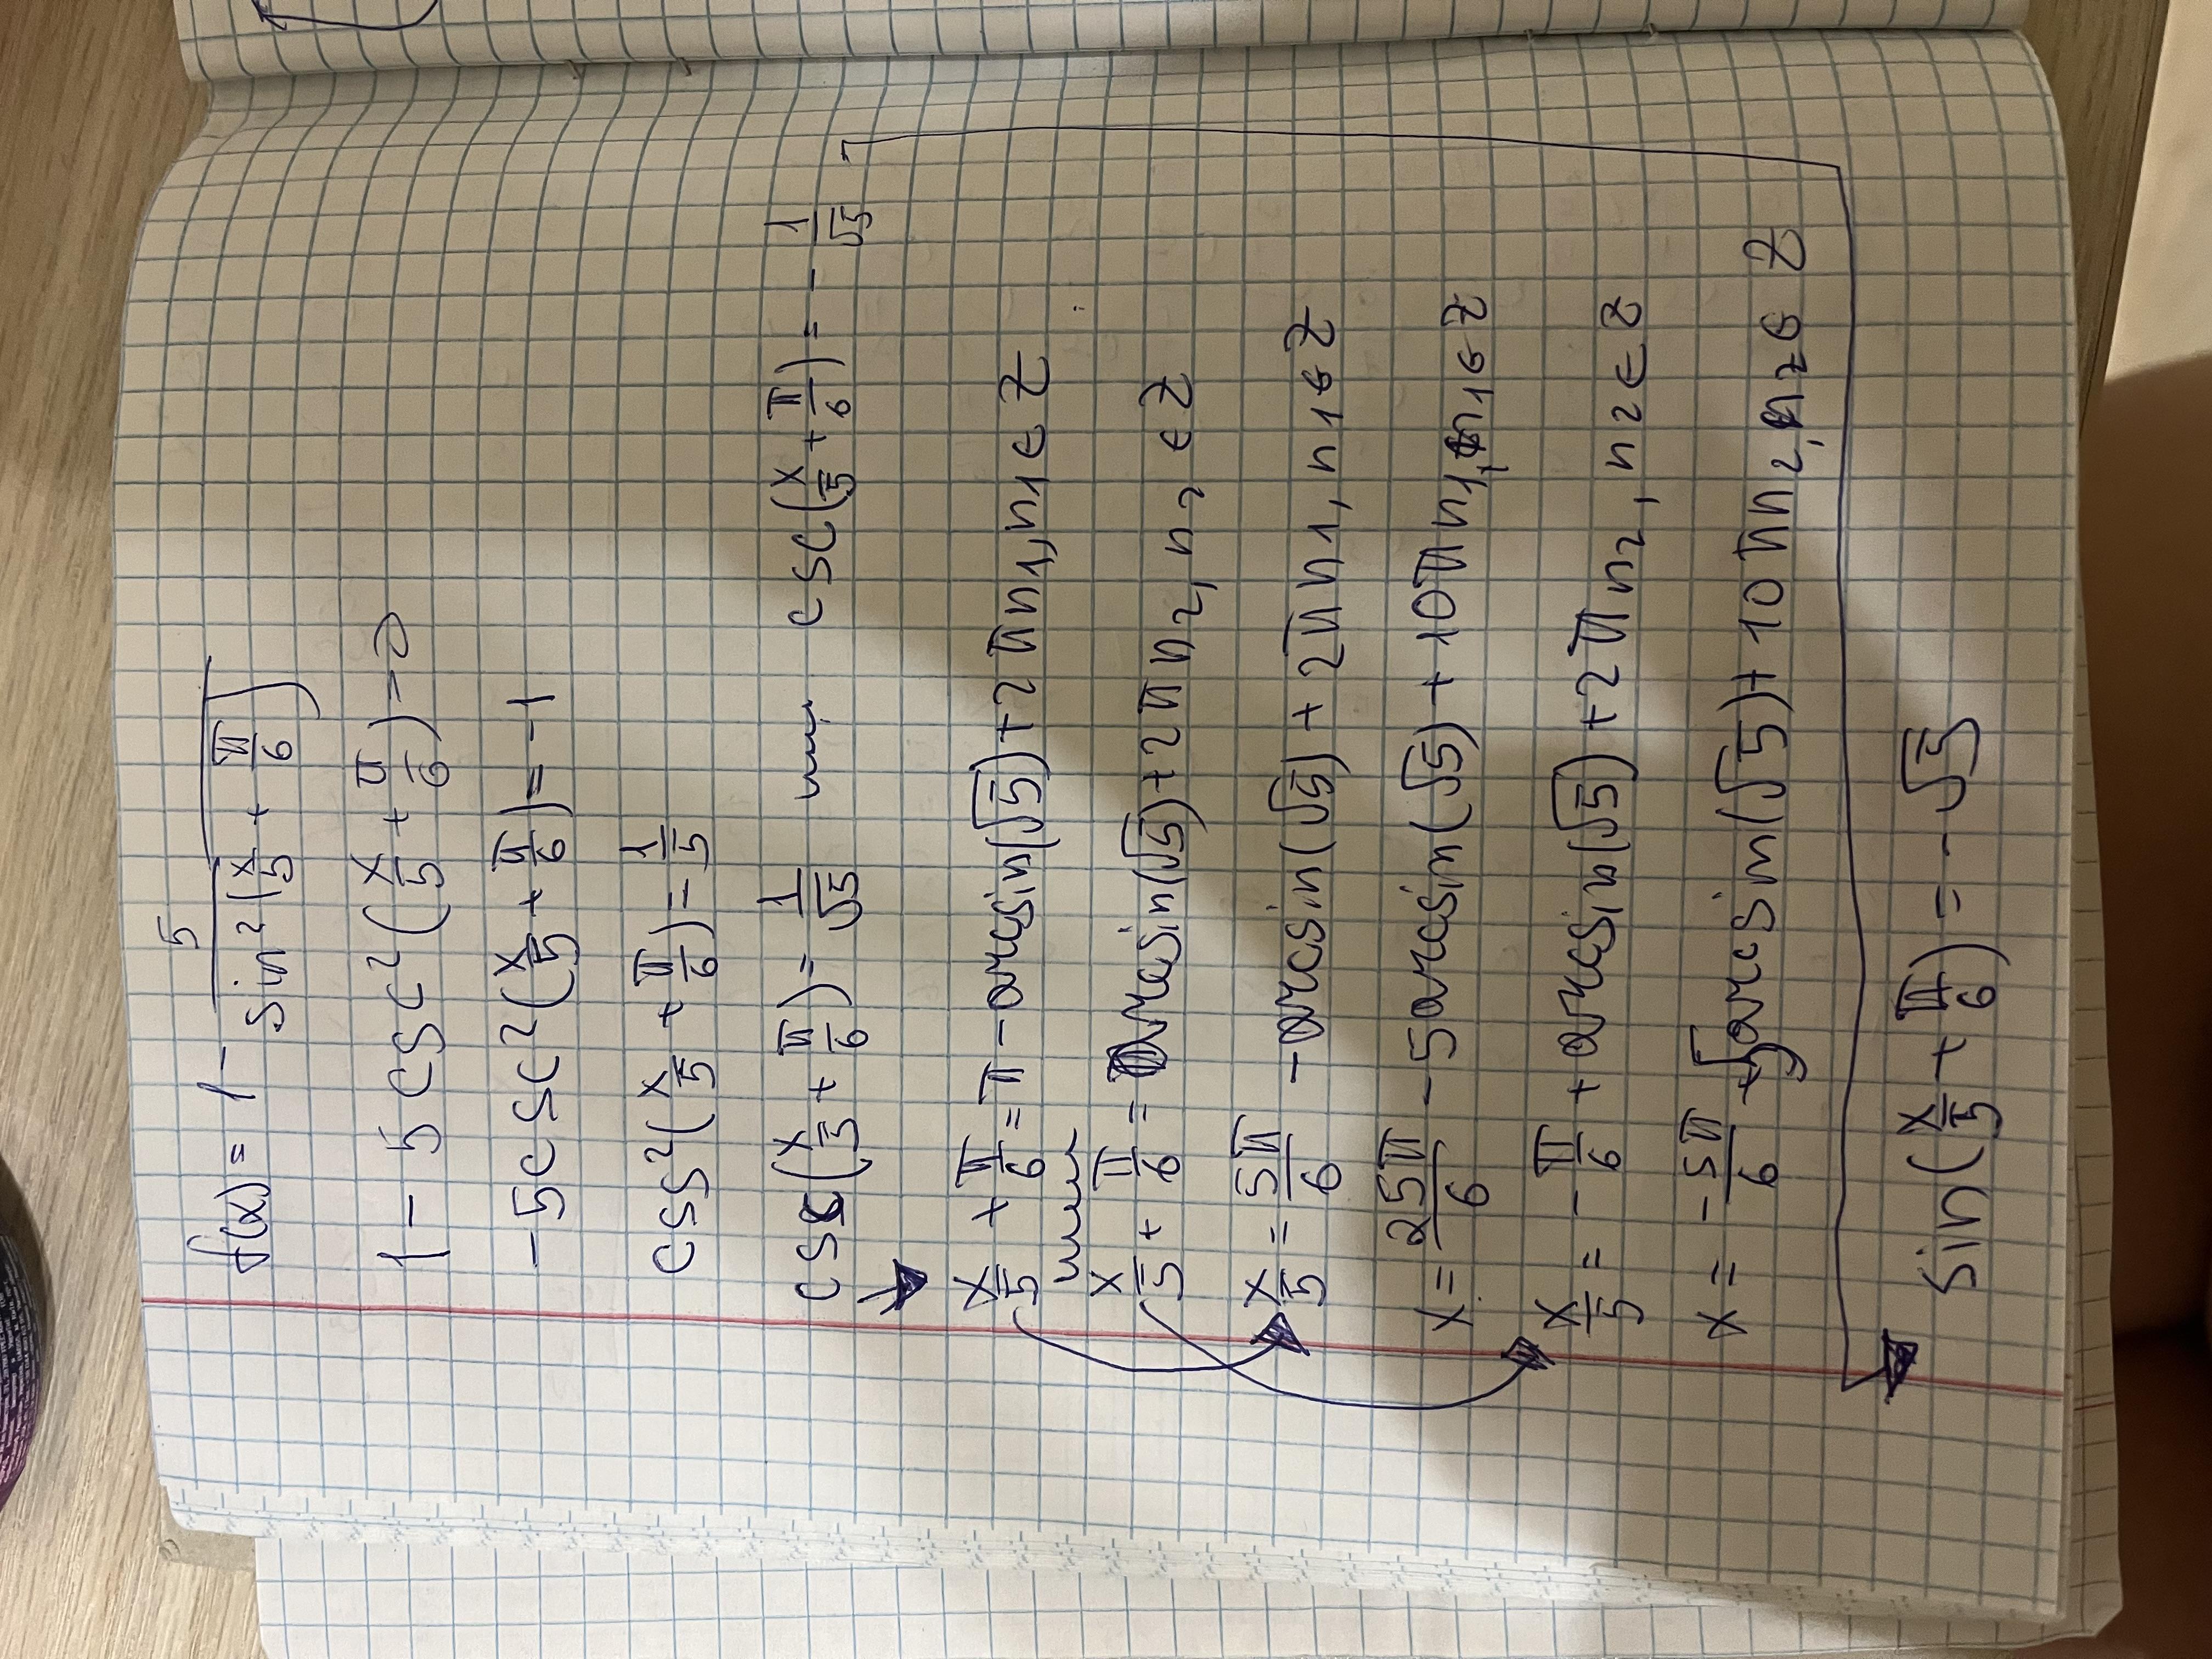 f(x) = 1 - 5/(sin²(x/5 + π/6))
1 - 5 csc²(x/5 + π/6) = 0
-5csc²(x/5 + π/6) = -1
csc²(x/5 + π/6) = 1/5
csc(x/5 + π/6) = 1/√5 или csc(x/5 + π/6) = - 1/√5
x/5 + π/6 = π - arcsin(√5) + 2πn₁, n₁ ∈ Z
или
x/5 + π/6 = arcsin(√5) + 2πn₂, n₂ ∈ Z
x/5 = 5π/6 - arcsin(√5) + 2πn₁, n₁ ∈ Z
x = 25π/6 - 5arcsin(√5) + 10πn₁, n₁ ∈ Z
x/5 = - π/6 + arcsin(√5) + 2πn₂, n₂ ∈ Z
x = - 5π/6 + 5arcsin(√5) + 10πn₂, n₂ ∈ Z
sin(x/5 + π/6) = - √5